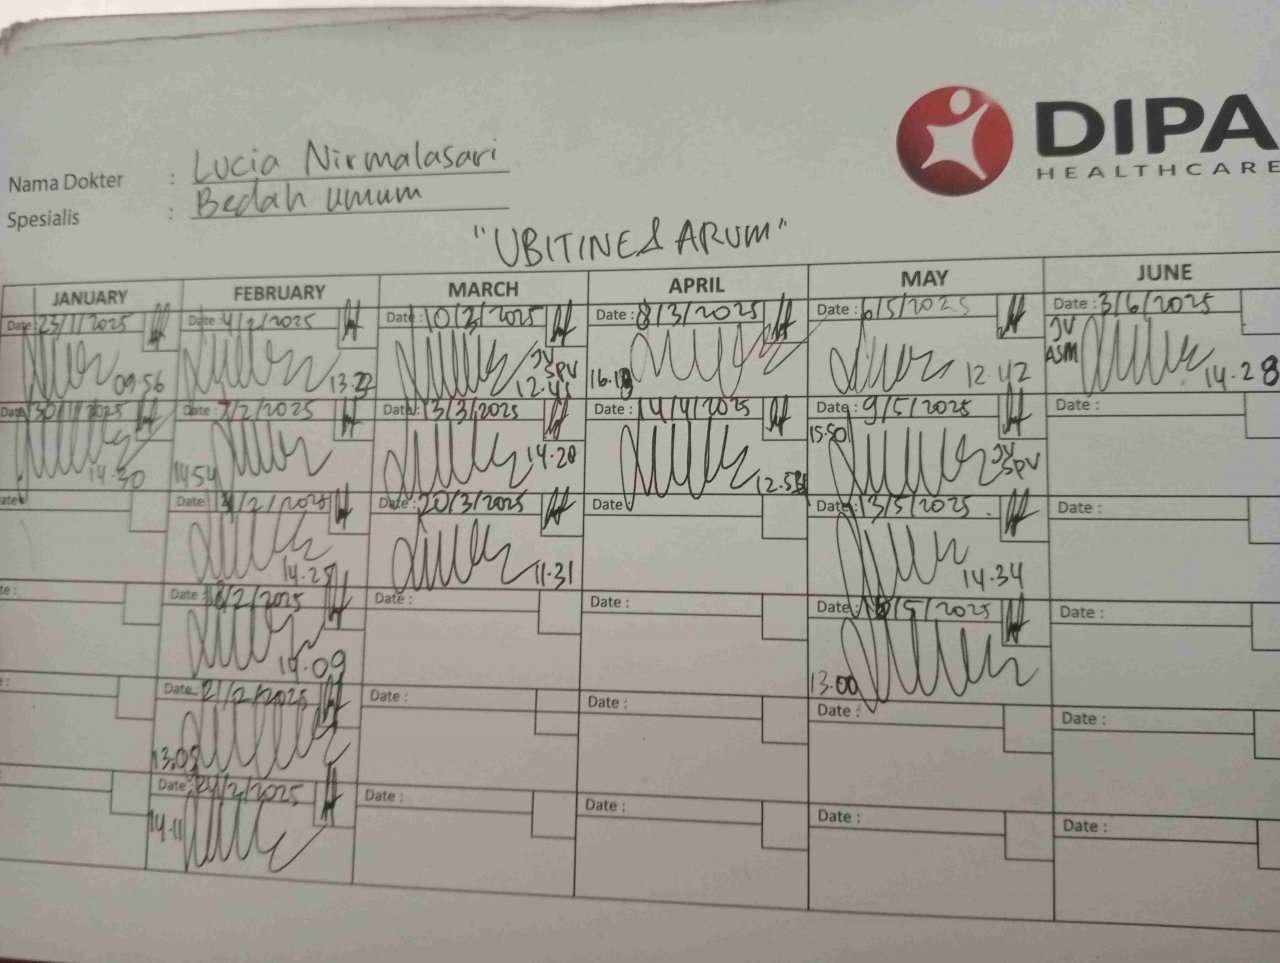 DIPA
HEALTHCARE
Nama Dokter : Lucia Nirmalasari
Spesialis : Bedah Umum
"UBITINE & ARUM"
JANUARY FEBRUARY MARCH APRIL MAY JUNE
Date: 23/1/2025 Date: 4/2/2025 Date: 10/3/2025 Date: 8/3/2025 Date: 6/5/2025 Date: 3/6/2025
JV SPV JV ASM
09.56 13.22 12.41 16.18 12.42 14.28
Date: 30/1/2025 Date: 7/2/2025 Date: 13/3/2025 Date: 14/4/2025 Date: 9/5/2025 Date :
15.50 JV SPV
14.30 14.54 14.20 12.53
Date /2/2025 Date: 20/3/2025 Date Date: 13/5/2025 Date :
14.25 11.31 14.34
Date: 18/2/2025 Date : Date : Date: /5/2025 Date :
14.09 13.00
Date 21/2/2025 Date : Date : Date : Date :
13.05
Date: 24/2/2025 Date : Date : Date : Date :
14.11